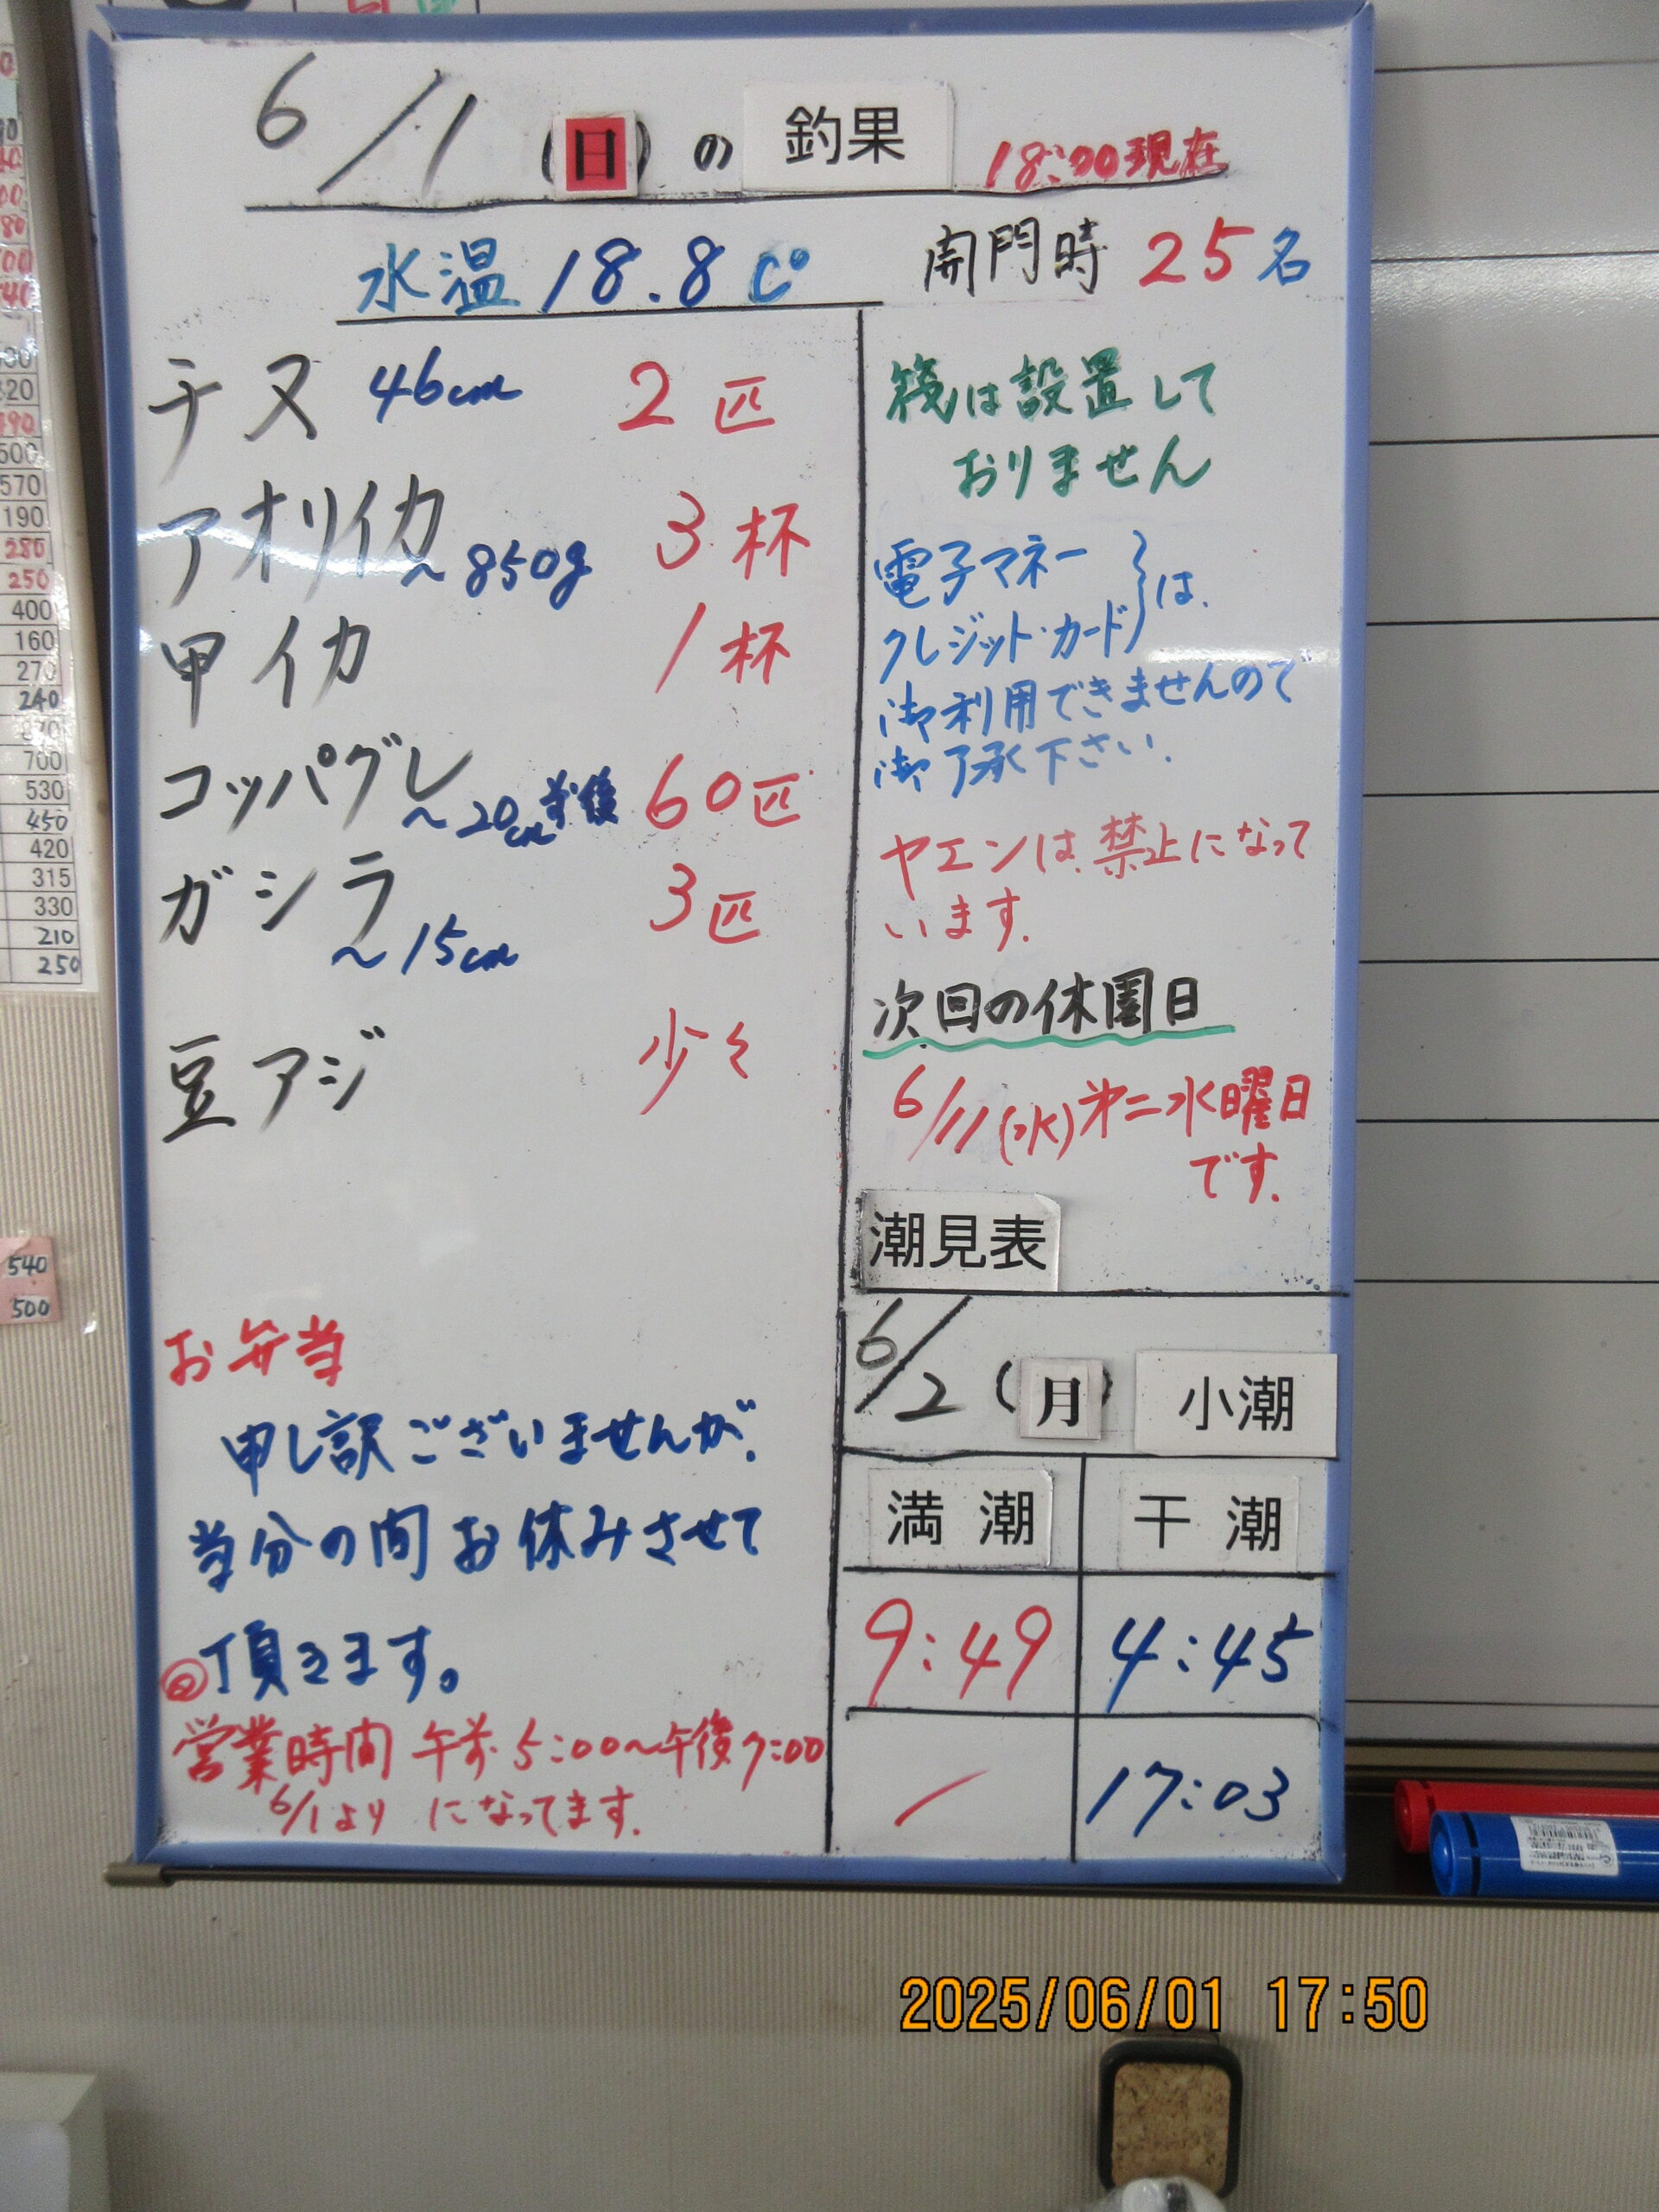 6/1(日)の釣果 18:00現在
水温 18.8 C° 開門時 25名
チヌ 46cm 2匹
アオリイカ ~850g 3杯
甲イカ 1杯
コッパグレ ~20cm前後 60匹
ガシラ ~15cm 3匹
豆アジ 少々
お弁当
申し訳ございませんが、
当分の間お休みさせて
頂きます。
営業時間 午前5:00~午後7:00
6/1より になってます.
筏は設置して
おりません
電子マネー
クレジット・カード}は、
御利用できませんので
御了承下さい.
ヤエンは、禁止になって
います.
次回の休園日
6/11(水)第二水曜日
です.
潮見表
6/2(月) 小潮
満潮 干潮
9:49 4:45
/ 17:03
540
500
00
20
490
500
570
190
280
250
400
160
270
240
700
530
450
420
315
330
210
250
2025/06/01 17:50